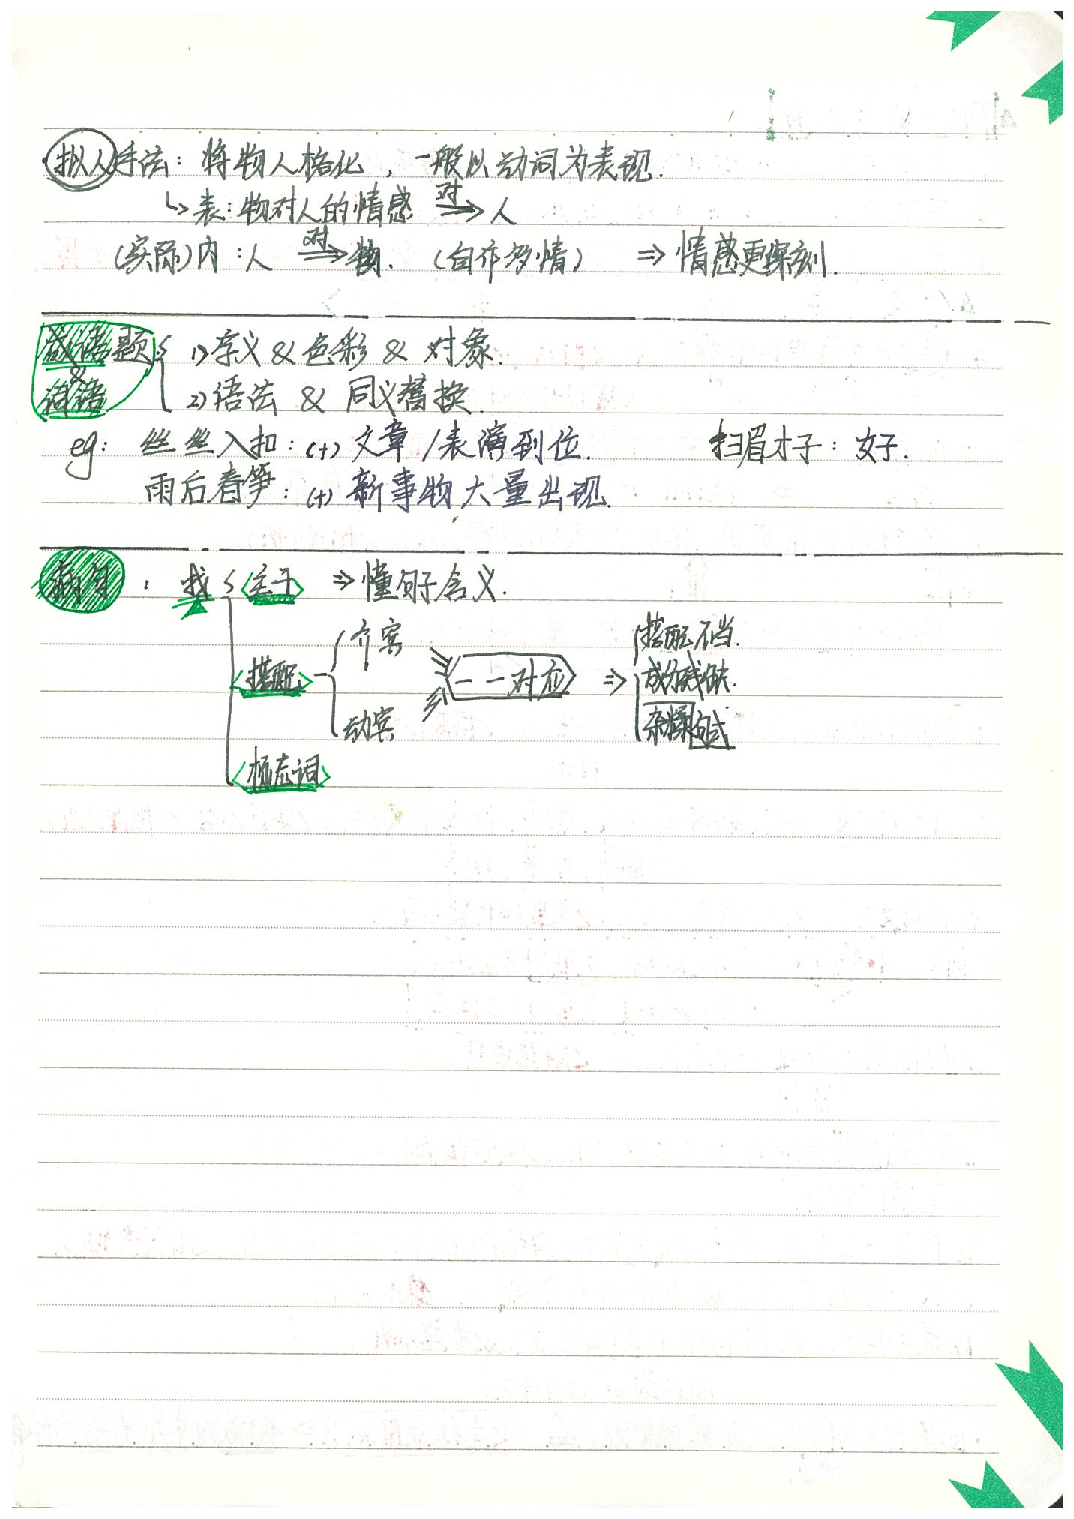 拟人手法：将物人格化，一般以动词为表现.
↳表：物对人的情感 对⇒ 人
(实际)内：人 对⇒ 物. (自作多情) ⇒ 情感更深刻.
成语题 & 词语
1) 字义 & 色彩 & 对象.
2) 语法 & 同义替换.
eg: 丝丝入扣：(+) 文章/表演到位. 扫眉才子：女子.
雨后春笋：(+) 新事物大量出现.
病句：找 主干 ⇒ 懂句子含义.
搭配 介宾 动宾 一一对应 ⇒ 搭配不当. 成分残缺. 杂糅句式
标志词